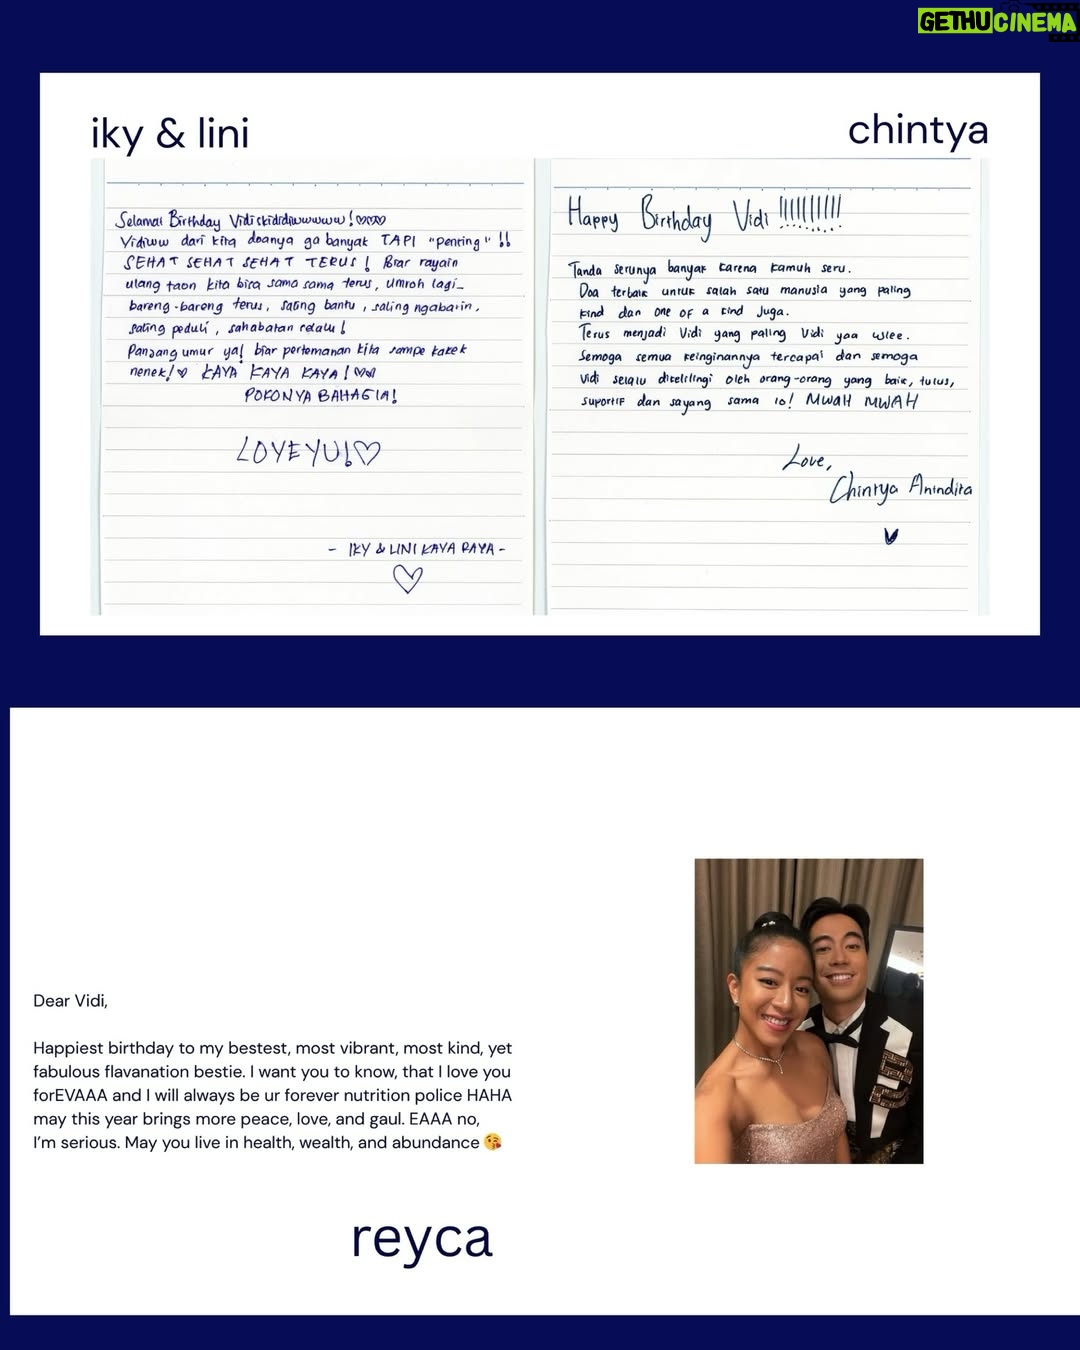 GETHUCINEMA
iky & lini
chintya
Selamat Birthday Vidi ckidididiwwwww!♡♡♡
Vidiww dari kita doanya ga banyak TAPI "penting" !!
SEHAT SEHAT SEHAT TERUS! Biar rayain
ulang taon kita bisa sama sama terus, umroh lagi
bareng-bareng terus, saling bantu, saling ngabarin,
saling peduli, sahabatan selalu!
Panjang umur ya! biar pertemanan kita sampe kakek
nenek!♡ KAYA KAYA KAYA!♡♡
POKONYA BAHAGIA!
LOVEYU!♡
- IKY & LINI KAYA RAYA -
♡
Happy Birthday Vidi !!!!!!!!!!
Tanda serunya banyak karena kamuh seru.
Doa terbaik untuk salah satu manusia yang paling
kind dan one of a kind juga.
Terus menjadi Vidi yang paling Vidi yaa wlee.
Semoga semua keinginannya tercapai dan semoga
Vidi selalu dikelilingi oleh orang-orang yang baik, tulus,
suportif dan sayang sama lo! MWAH MWAH
Love,
Chintya Anindita
Dear Vidi,
Happiest birthday to my bestest, most vibrant, most kind, yet
fabulous flavanation bestie. I want you to know, that I love you
forEVAAA and I will always be ur forever nutrition police HAHA
may this year brings more peace, love, and gaul. EAAA no,
I'm serious. May you live in health, wealth, and abundance 😘
reyca